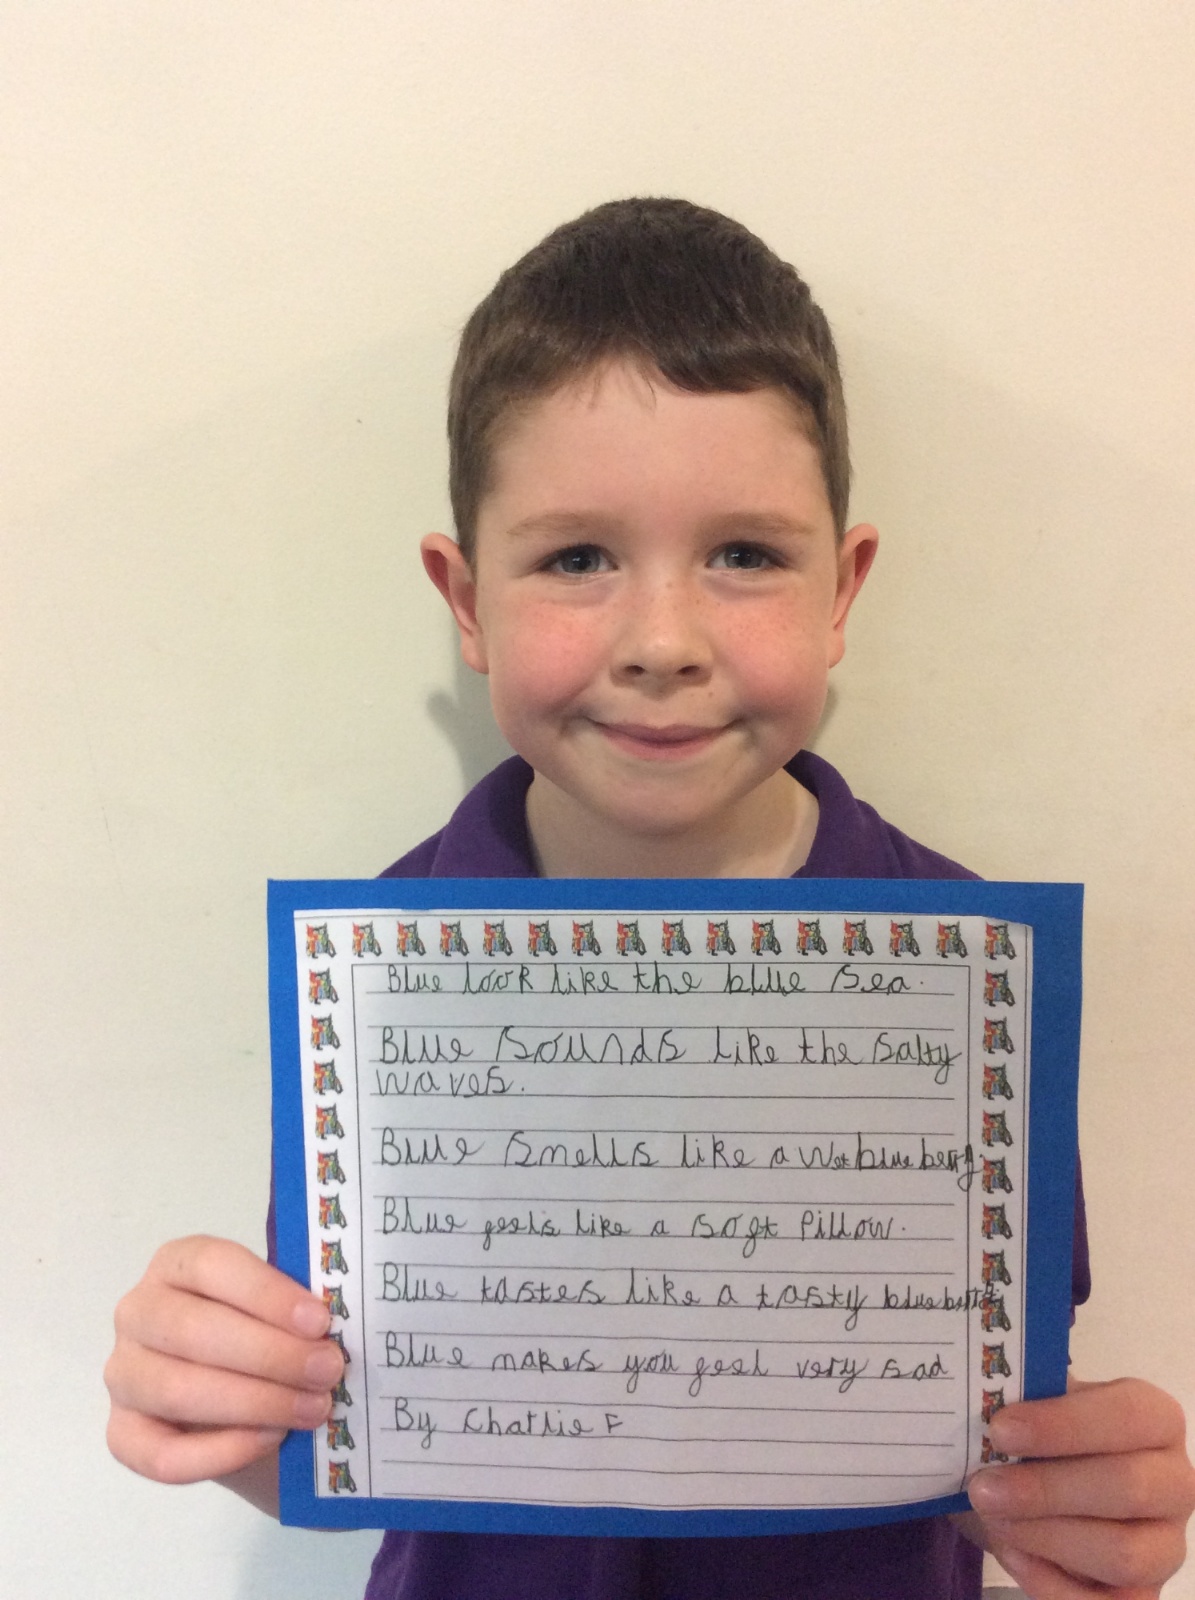 Blue look like the blue sea.
Blue sounds like the salty
waves.
Blue smells like a wet blueberry.
Blue feels like a soft pillow.
Blue tastes like a tasty blueberry.
Blue makes you feel very sad
By Charlie F